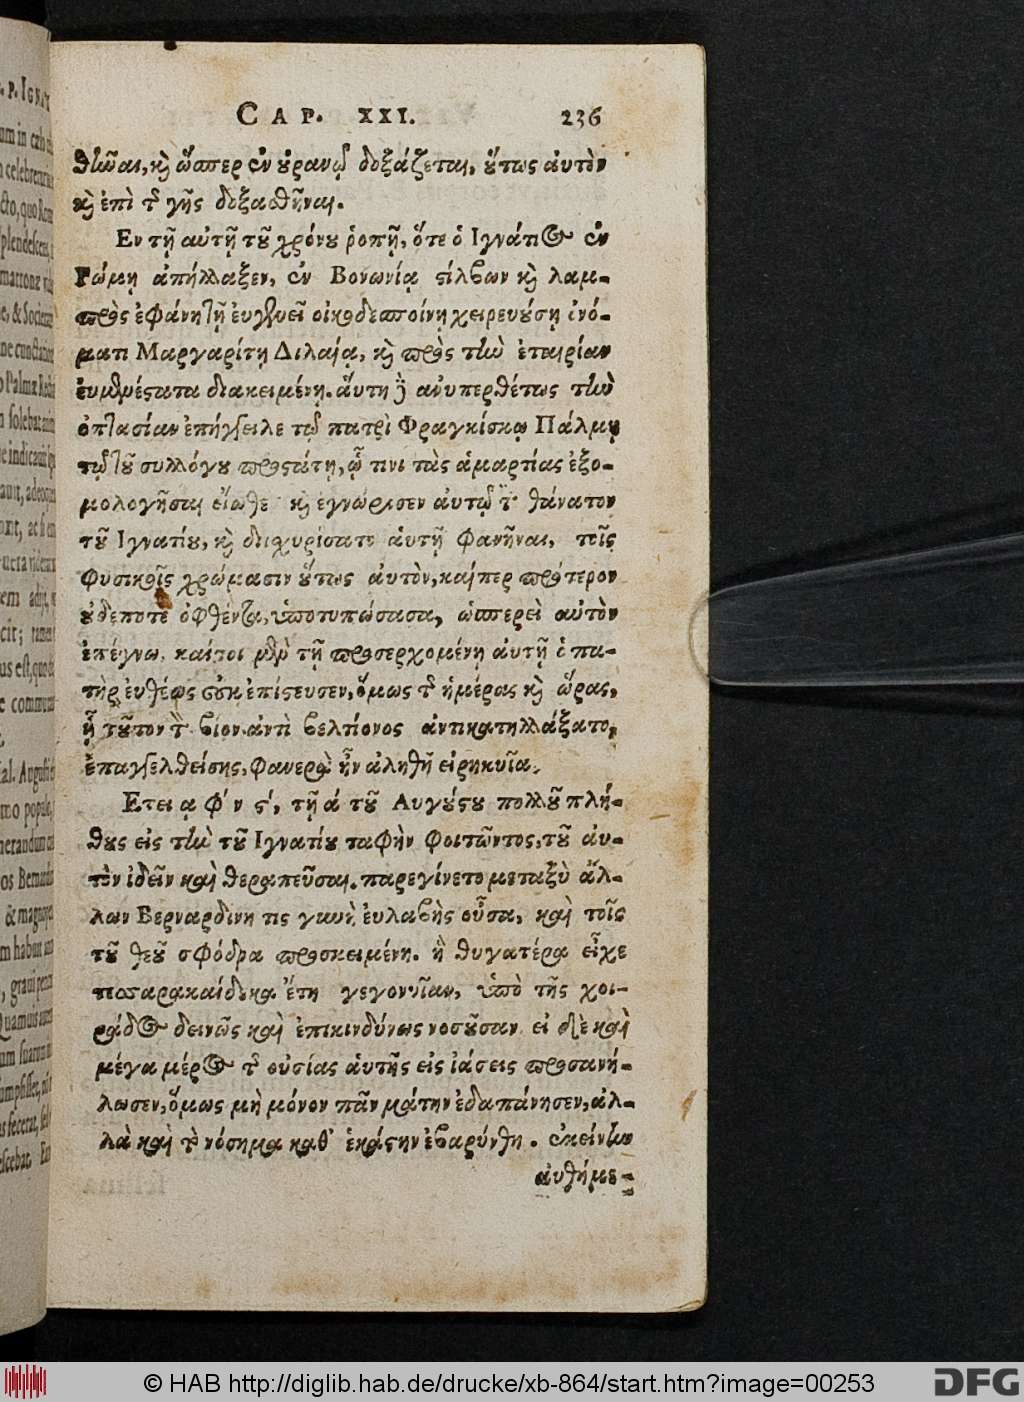 CAP. XXI. 236
θῶναι, καὶ ὥσπερ ἐν οὐρανῷ δοξάζεται, οὕτως αὐτὸν
καὶ ἐπὶ τῆς γῆς δοξασθῆναι.
Εν τῇ αὐτῇ τοῦ χρόνου ῥοπῇ, ὅτε ὁ Ιγνάτιος ἐν
Ρώμῃ ἀπήλλαξεν, ἐν Βονωνίᾳ στίλβων καὶ λαμ-
πρὸς ἐφάνη τῇ εὐγενεῖ οἰκοδεσποίνῃ χειρευούσῃ ὀνό-
ματι Μαργαρίτῃ Διλαίᾳ, καὶ πρὸς τὴν ἑταιρίαν
εὐμενέστατα διακειμένῃ. αὕτη δὲ ἀνυπερθέτως τὴν
ὀπτασίαν ἐπήγγειλε τῷ πατρὶ Φραγκίσκῳ Πάλμῃ
τῷ τοῦ συλλόγου προστάτῃ, ᾧ τινι τὰς ἁμαρτίας ἐξο-
μολογῆσαι εἴωθε καὶ ἐγνώρισεν αὐτῷ τὸν θάνατον
τοῦ Ιγνατίου, καὶ διισχυρίσατο αὑτῇ φανῆναι, τοῖς
φυσικοῖς χρώμασιν οὕτως αὐτὸν, καίπερ πρότερον
οὐδέποτε ὀφθέντα, ὑποτυπώσασα, ὡσπερεὶ αὐτὸν
ἐπέγνω. καίτοι μὲν τῇ προσερχομένῃ αὐτῇ ὁ πα-
τὴρ εὐθέως οὐκ ἐπίστευσεν, ὅμως τῆς ἡμέρας καὶ ὥρας,
ᾗ τοῦτον τὸν βίον ἀντὶ βελτίονος ἀντικατηλλάξατο,
ἐπαγγελθείσης, φανερὰ ἦν ἀληθῆ εἰρηκυῖα.
Ετει ᾳ φ´ ν ς´, τῇ ά τοῦ Αυγούστου πολλοῦ πλή-
θους εἰς τὴν τοῦ Ιγνατίου ταφὴν φοιτῶντος, τοῦ αὐ-
τὸν ἰδεῖν καὶ θεραπεῦσαι. παρεγίνετο μεταξὺ ἄλ-
λων Βερναρδίνη τις γυνὴ εὐλαβὴς οὖσα, καὶ τοῖς
τοῦ θεοῦ σφόδρα προσκειμένη. ἣ θυγατέρα εἶχε
τεσσαρακαίδεκα ἔτη γεγονυῖαν, ὑπὸ τῆς χοι-
ράδος δεινῶς καὶ ἐπικινδύνως νοσοῦσαν εἰ δὲ καὶ
μέγα μέρος τῆς οὐσίας αὑτῆς εἰς ἰάσεις προσανή-
λωσεν, ὅμως μὴ μόνον πᾶν μάτην ἐδαπάνησεν, ἀλ-
λὰ καὶ τὸ νόσημα καθ' ἑκάστην ἐβαρύνθη. ἐκείνην
αὐθήμε-
© HAB http://diglib.hab.de/drucke/xb-864/start.htm?image=00253
DFG